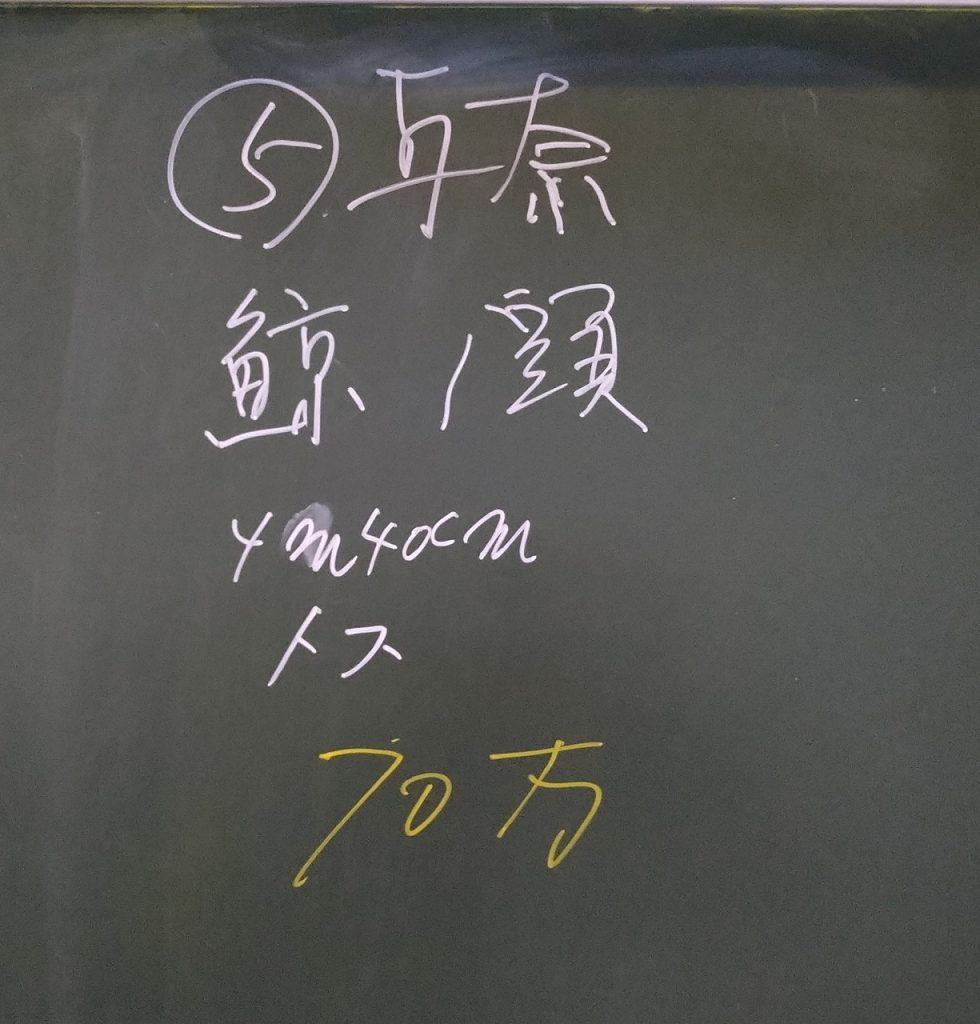 ⑤
鯨 1頭
4m40cm
メス
70万